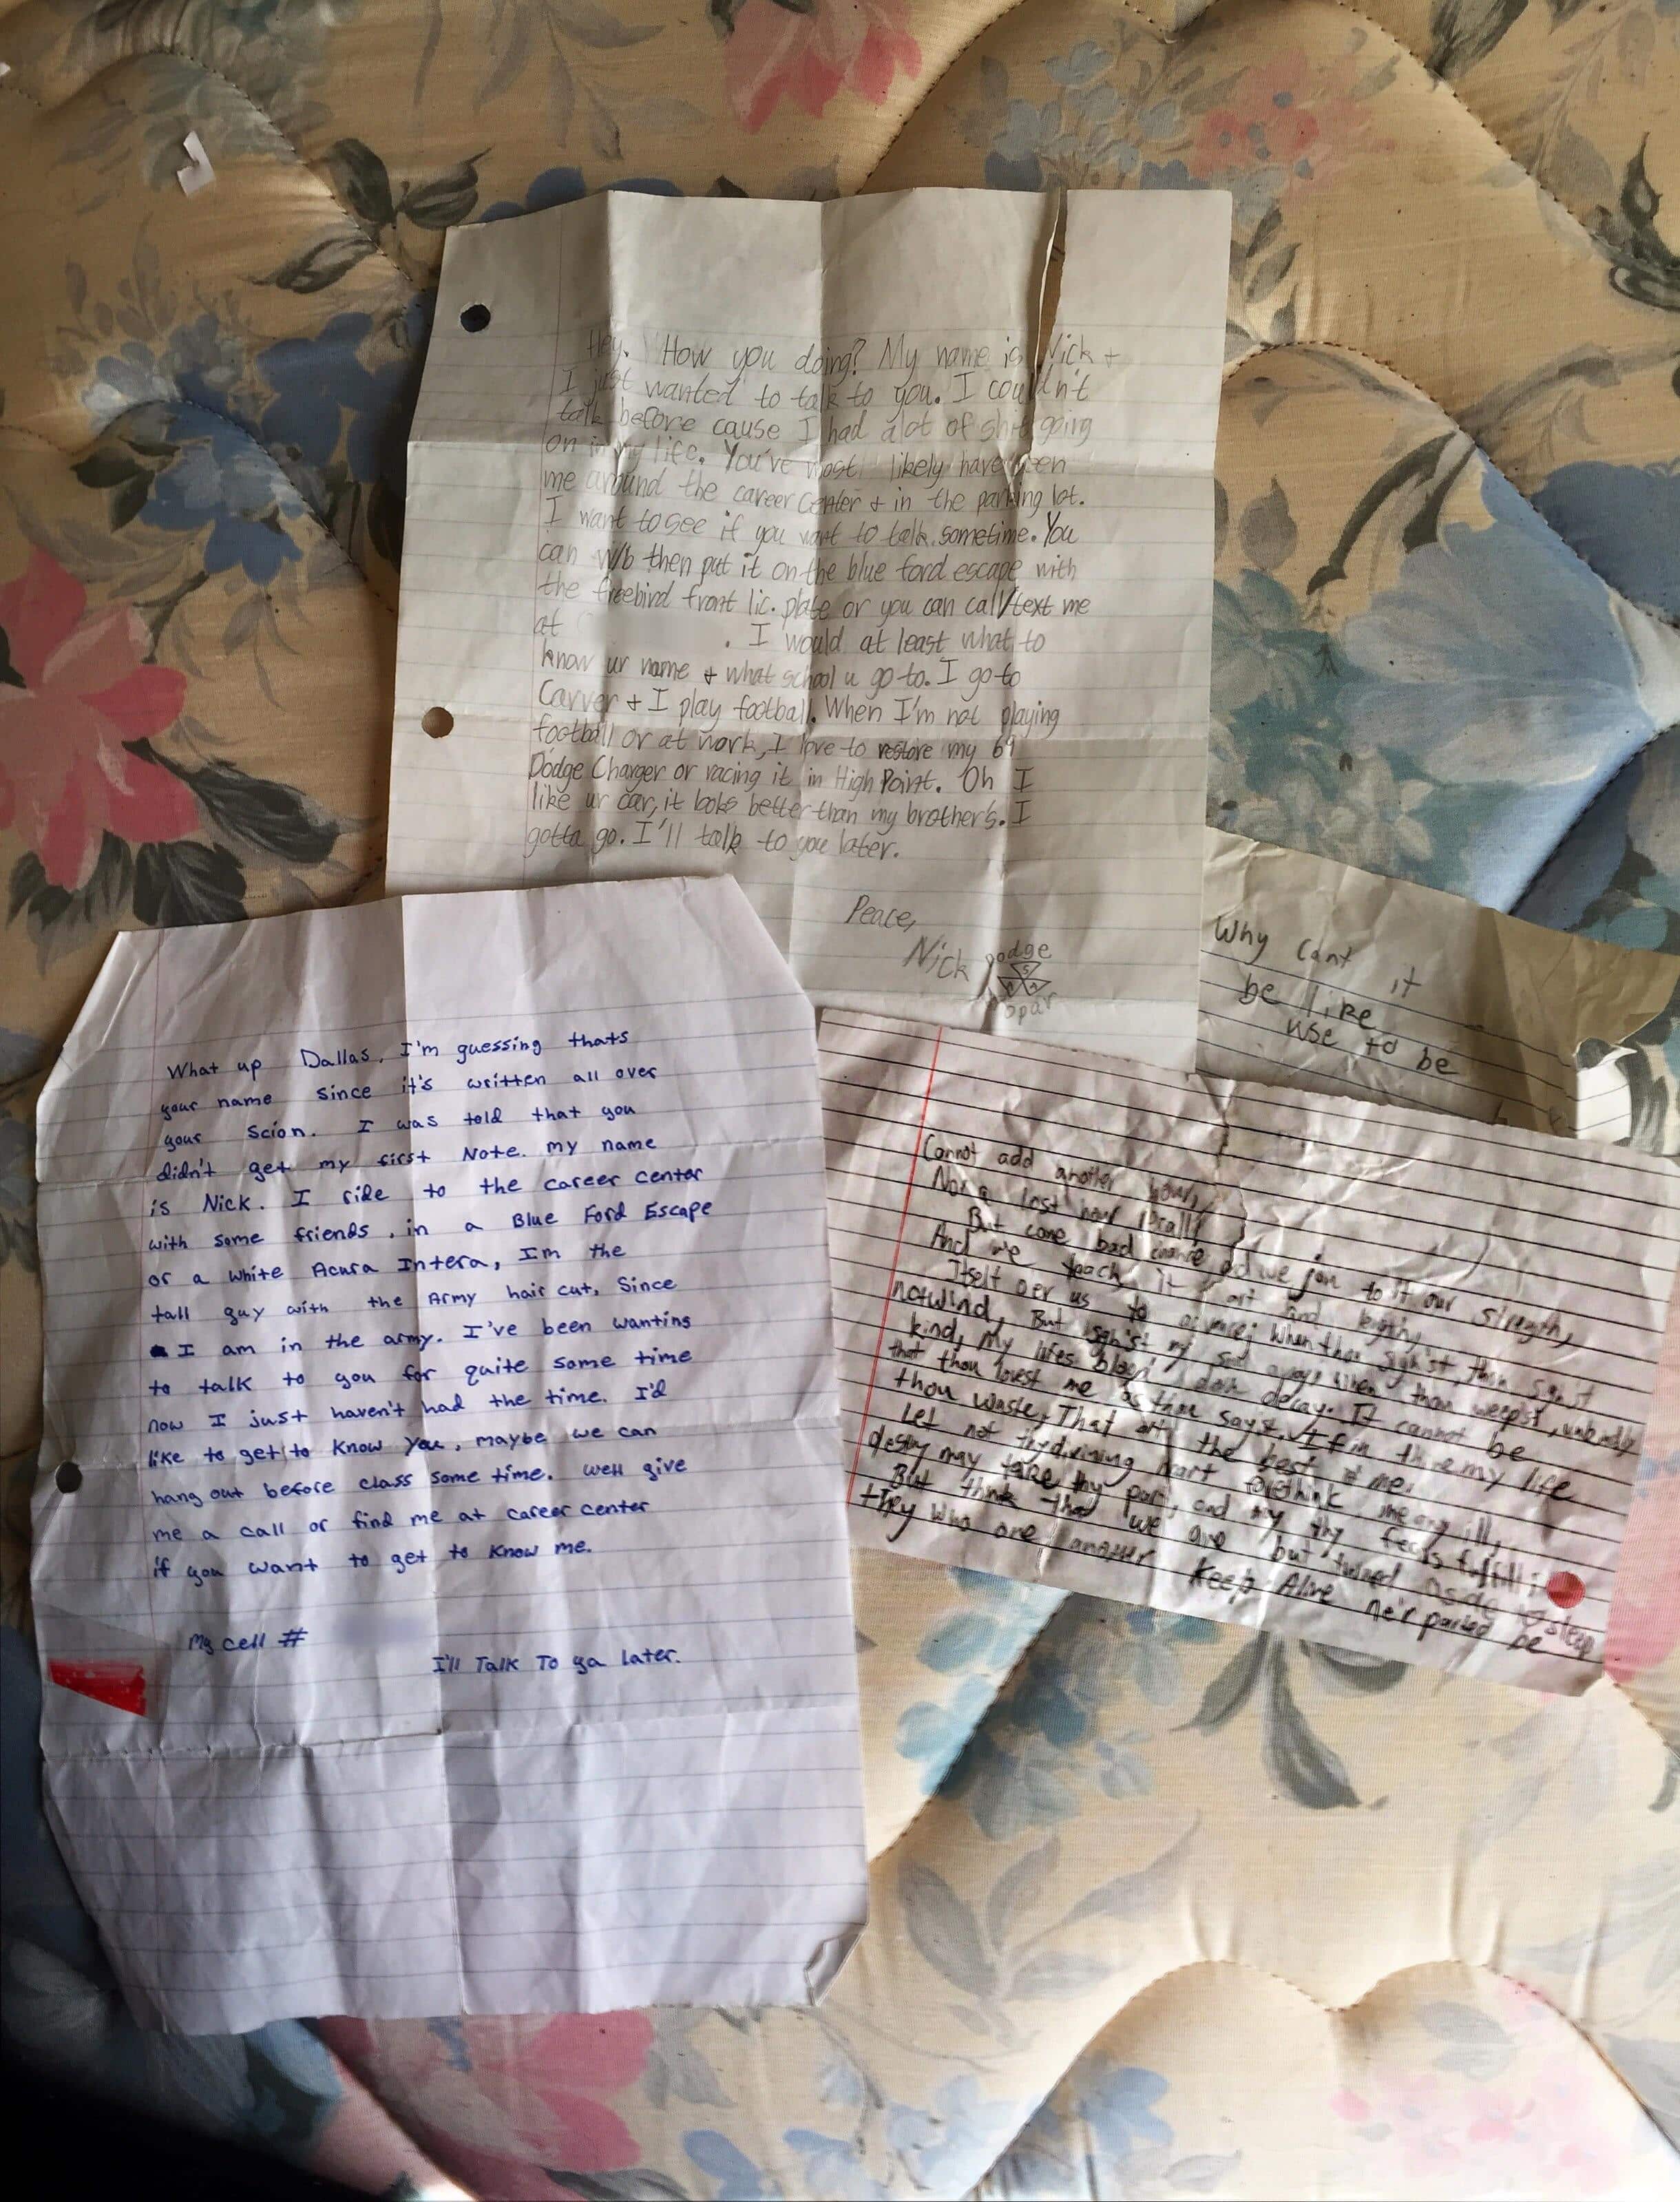 Hey. How you doing? My name is Nick +
I just wanted to talk to you. I couldn't
talk before cause I had alot of shit going
on in my life. You've most likely have seen
me around the career center + in the parking lot.
I want to see if you want to talk sometime. You
can w/b then put it on the blue ford escape with
the freebird front lic. plate or you can call/text me
at . I would at least what to
know ur name + what school u go to. I go to
Carver + I play football. When I'm not playing
football or at work, I love to restore my 69
Dodge Charger or racing it in High Point. Oh I
like ur car, it looks better than my brother's. I
gotta go. I'll talk to you later.
Peace,
Nick
Dodge
Mopar
What up Dallas. I'm guessing thats
your name since it's written all over
your Scion. I was told that you
didn't get my first Note. my name
is Nick. I ride to the career center
with some friends, in a Blue Ford Escape
or a white Acura Intera, Im the
tall guy with the Army hair cut, Since
I am in the army. I've been wanting
to talk to you for quite some time
now I just haven't had the time. I'd
like to get to know you, maybe we can
hang out before class some time. well give
me a call or find me at career center
if you want to get to know me.
My cell #
I'll Talk To ya later.
Why cant it
be like
use to be
Cannot add another hour,
Nor a lost hour recall!
But come bad chance and we join to it our strength,
And we teach it art and length,
Itself oer us to advance; When thou sigh'st, thou sigh'st
not wind, But sigh'st my soul away; When thou weepst, unkindly
kind, My lifes blood doth decay. It cannot be
that thou lovest me as thou sayst, If in thine my life
thou waste, That art the best of me.
Let not thy divining heart forethink me any ill,
destny may take thy part, and my thy fears fulfill;
But think that we are but turned aside to sleep
they who one another keep Alive ne'r parted be